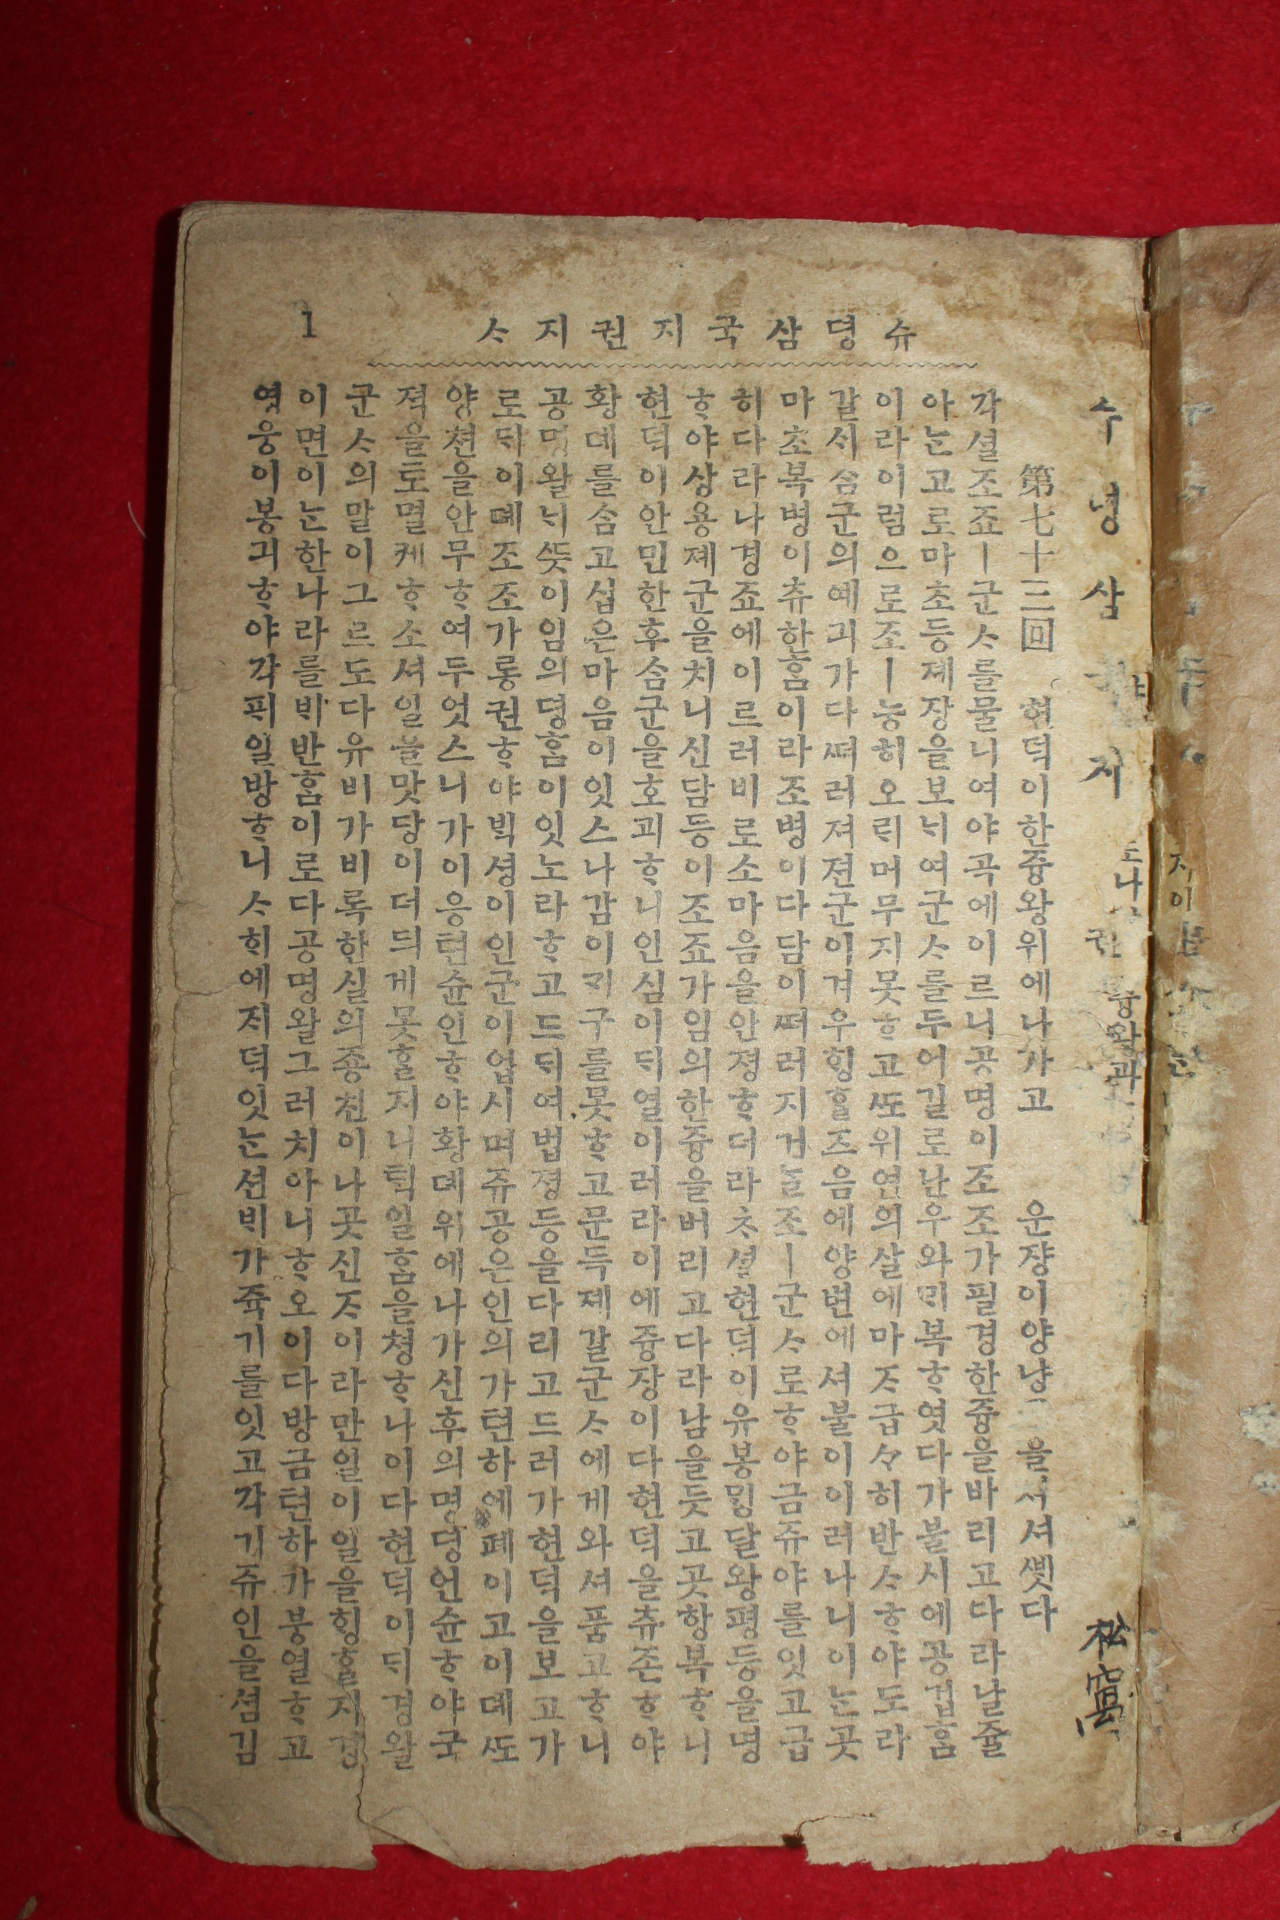 슈뎡삼국지권지ᄉ
1
수녕삼국지
권
松窩
第七十三回 현덕이한즁왕위에나가고 운쟝이양냥을
각셜조죠ㅣ군ᄉ를물니여야곡에이르니공명이조조가필경한즁을바리고다라날쥴
아ᄂᆞᆫ고로마초등졔장을보ᄂᆡ여군ᄉ를두어길로난우와ᄆᆡ복ᄒᆞ엿다가불시에공겁ᄒᆞᆷ
이라이럼으로조ㅣ능히오ᄅᆡ머무지못ᄒᆞ고ᄯᅩ위연의살에마ᄌ급々히반ᄉᄒᆞ야도라
갈ᄉᆡ삼군의예긔가다ᄯᅥ러져젼군이겨우ᄒᆡᆼᄒᆞᆯ즈음에양변에셔불이이러나니이ᄂᆞᆫ곳
마초복병이츄한ᄒᆞᆷ이라조병이다담이ᄯᅥ러지거ᄂᆞᆯ조ㅣ군ᄉ로ᄒᆞ야금쥬야를잇고급
히다라나경죠에이르러비로소마음을안졍ᄒᆞ더라ᄎ셜현덕이유봉ᄆᆡᆼ달왕평등을명
ᄒᆞ야상용졔군을치니신담등이조죠가임의한즁을버리고다라남을듯고곳항복ᄒᆞ니
현덕이안민한후삼군을호궤ᄒᆞ니인심이ᄃᆡ열이러라이에즁장이다현덕을츄존ᄒᆞ야
황뎨를삼고십은마음이잇스나감이구를못ᄒᆞ고문득졔갈군ᄉ에게와셔품고ᄒᆞ니
공명왈ᄂᆡᄯᅳᆺ이임의뎡ᄒᆞᆷ이잇노라ᄒᆞ고드ᄃᆡ여법졍등을다리고드러가현덕을보고가
로ᄃᆡ이뎨조조가롱권ᄒᆞ야ᄇᆡᆨ셩이인군이업시며쥬공은인의가텬하에폐이고이뎨ᄯᅩ
양쳔을안무ᄒᆞ여두엇스니가이응텬슌인ᄒᆞ야황뎨위에나가신후의명뎡언슌ᄒᆞ야국
젹을토멸케ᄒᆞ소셔일을맛당이더듸게못ᄒᆞᆯ지니ᄐᆡᆨ일ᄒᆞᆷ을쳥ᄒᆞ나이다현덕이ᄃᆡ경왈
군ᄉ의말이그르도다유비가비록한실의종친이나곳신ᄌ이라만일이일을ᄒᆡᆼᄒᆞᆯ지경
이면이ᄂᆞᆫ한나라를ᄇᆡ반ᄒᆞᆷ이로다공명왈그러치아니ᄒᆞ오이다방금텬하가붕열ᄒᆞ고
영웅이봉긔ᄒᆞ야각픽일방ᄒᆞ니ᄉᄒᆡ에ᄌᆡ덕잇ᄂᆞᆫ션ᄇᆡ가쥭기를잇고각기쥬인을셤김